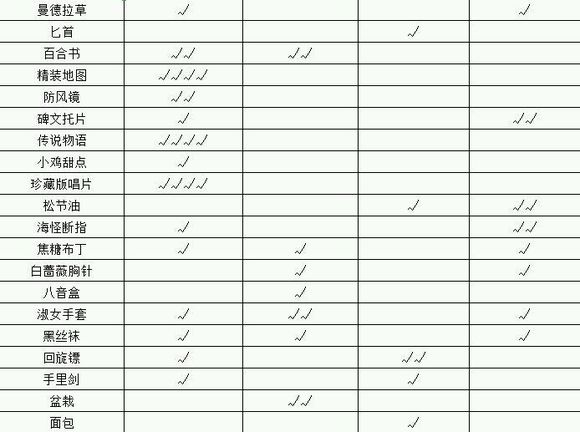 曼德拉草 √ √
匕首 √
百合书 √√ √√
精装地图 √√√√
防风镜 √√
碑文托片 √ √√
传说物语 √√√√
小鸡甜点 √
珍藏版唱片 √√√√
松节油 √ √√
海怪断指 √ √√
焦糖布丁 √ √ √
白蔷薇胸针 √ √
八音盒 √
淑女手套 √ √√ √
黑丝袜 √ √ √
回旋镖 √ √√
手里剑 √ √
盆栽 √√
面包 √